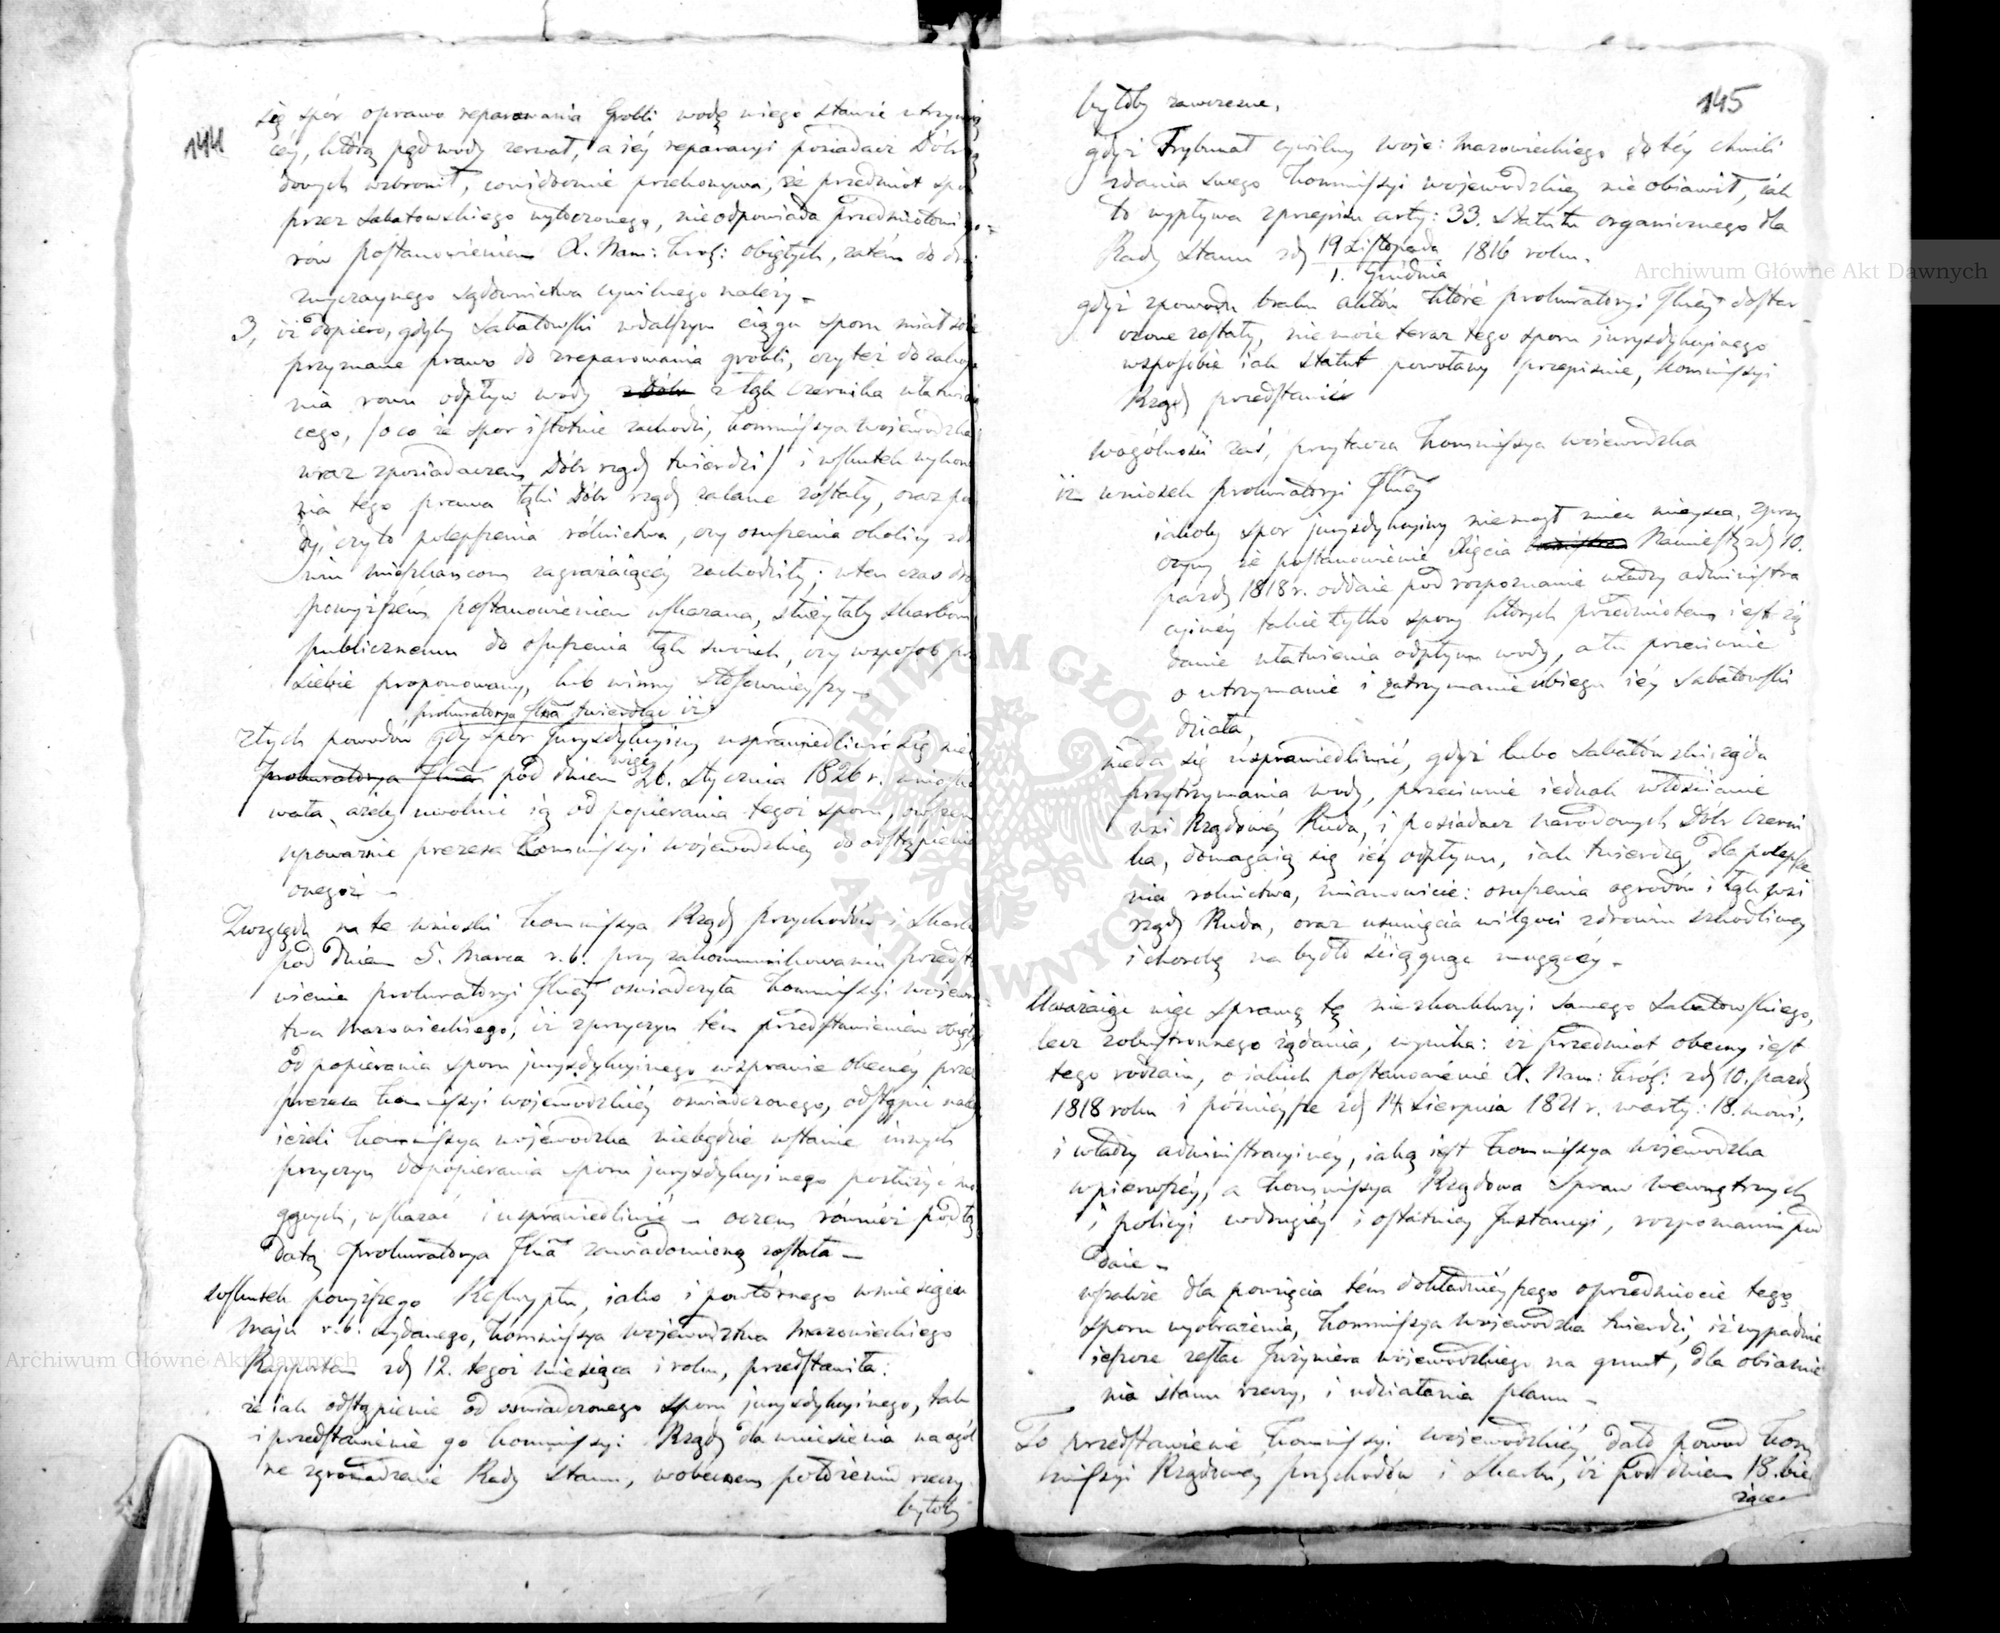 144
się spór o prawo reparowania Grobli wodę w iego stawie utrzymuią
cey, którą pęd wody zerwał, a iéy reparacyi posiadacz Dóbr
dowych wzbronił, co widocznie przekonywa, że przedmiot spo
przez Sabatowskiego wytoczonego, nie odpowiada przedmiotowi
rów postanowieniem X. Nam: Król: obiętych, zatém do dro
zwyczaynego sądownictwa cywilnego należy –
3, iż dopiero, gdyby Sabatowski w dalszym ciągu sporu miał sobie
przyznane prawo do zreparowania grobli, czy też do zakopa
nia rowu odpływ wody z łąk Czernika ułatwia
cego, /o co że spor istotnie zachodzi, Kommissya Woiewódzka
wraz z posiadaczem Dóbr rząd: twierdzi/ i w skutek wykona
nia tego prawa łąki Dóbr rząd: zalane zostały, oraz po
dy, czy to polepszenia rólnictwa, czy osuszenia okolicy zdro
wiu mieszkańcom zagrażaiącéy zachodziły; w ten czas dro
powyższém postanowieniem wskazana, służyłaby Skarbowi
publicznemu do osuszenia łąk swoich, czy w sposób prz
siebie proponowany, lub winny stosownieyszy –
Prokuratorya Jlna twierdząc iż
z tych powodów gdy spór Juryzdykcyiny usprawiedliwić się nie
więc
Prokuratorya Jlna pod dniem 26. Stycznia 1826 r. wniosko
wała, ażeby uwolnić ią od popierania tegoż sporu, owszem
upoważnić prezesa Kommissyi Woiewódzkiey do odstąpienia
onegoż –
Zwzględu na te wnioski Kommissya Rząd: Przychodów i Skarbu
pod dniem 5. Marca r. b. przy zakommunikowaniu przedsta
wienia prokuratoryi Jlnéy oświadczyła Kommissyi Woiewódz
twa Mazowieckiego, iż z przyczyn tém przedstawieniem obięt
od popierania sporu juryzdykcyinego w sprawie obecnéy prze
prezesa Kommissyi woiewódzkiéy oświadczonego, odstąpić należ
ieżeli Kommissya woiewódzka niebędzie w stanie innych
przyczyn do popierania sporu juryzdykcyinego posłużyć mo
gących, wskazać i usprawiedliwić – o czem również pod tą
datą Prokuratorya Jlna zawiadomioną została –
Wskutek powyższego Reskryptu, iako i powtórnego w miesiącu
Maju r. b. wydanego, Kommissya Woiewództwa Mazowieckiego
Rapportem zd: 12. tegoż miesiąca i roku, przedstawiła:
że iak odstąpienie od oświadczonego sporu juryzdykcyinego, tak
i przedstawienie go Kommissyi Rząd: dla wniesienia na ogól
ne zgromadzenie Rady Stanu, w obecnem położeniu rzeczy
byłoby
145
byłoby zawczesne,
gdyż Trybunał cywilny Woje: Mazowieckiego do téy chwili
zdania swego Kommissyi woiewódzkiey nie obiawił, iak
to wypływa z przepisu arty: 33. Statutu organicznego dla
Rady Stanu zd: 19 Listopada / 1. Grudnia 1816 roku.
gdyż z powodu braku aktów które prokuratoryi Jlnéy dostar
czone zostały, nie może teraz tego sporu juryzdykcyinego
w sposobie iak Statut powołany przepisuie, Kommissyi
Rząd: przedstawić
W ogólności zaś, przytacza Kommissya woiewódzka
iż wniosek prokuratoryi Jlnéy
iakoby spor juryzdykcyiny nie mógł mieć mieysca, z przy
czyny że postanowienie Xięcia Namiest: zd: 10.
paźdz 1818 r. oddaie pod rozpoznanie władzy administra
cyinéy takie tylko spory których przedmiotem iest żą
danie ułatwienia odpływu wody, a tu przeciwnie
o utrzymanie i zatrzymanie ubiegu iéy Sabatowski
działa,
nieda się usprawiedliwić, gdyż lubo Sabatowski żąda
przytrzymania wody, przeciwnie iednak włościanie
wsi Rządowéy Ruda, i posiadacz narodowych Dóbr Czerni
ka, domagaią się iéy odpływu, iak twierdzą, dla polepsze
nia rolnictwa, mianowicie: osuszenia ogrodów i łąk wsi
rząd: Ruda, oraz usunięcia wilgoci zdrowiu szkodliwey
i chorobę na bydło ściągnąć mogącéy –
Uważaiąc więc sprawę tę nie z konkluzyi samego Sabatowskiego,
lecz z obustronnego żądania, wynika: iż przedmiot obecny iest
tego rodzaiu, o iakich postanowienie X. Nam: Król: zd: 10. paźdz
1818 roku i późnieysze zd: 14 Sierpnia 1821 r. w arty: 18. mówi,
i władzy administracyinéy, iaką iest Kommissya woiewódzka
w pierwszéy, a Kommissya Rządowa Spraw Wewnętrznych
i policyi w drugiéy i ostatniey Instancyi, rozpoznaniu pod
daie –
wszakże dla powzięcia tém dokładnieyszego o przedmiocie tego
sporu wyobrażenia, Kommissya woiewódzka twierdzi, iż wypadnie
ieszcze zesłać Jnżyniera woiewódzkiego na grunt, dla obiaśnie
nia stanu rzeczy, i udziałania planu –
To przedstawienie Kommissyi woiewódzkiéy dało powód Kom
missyi Rządowéy przychodów i Skarbu, iż pod dniem 18. bie
żące
Archiwum Główne Akt Dawnych
Archiwum Główne Akt Dawnych
ARCHIWUM GŁÓWNE AKT DAWNYCH